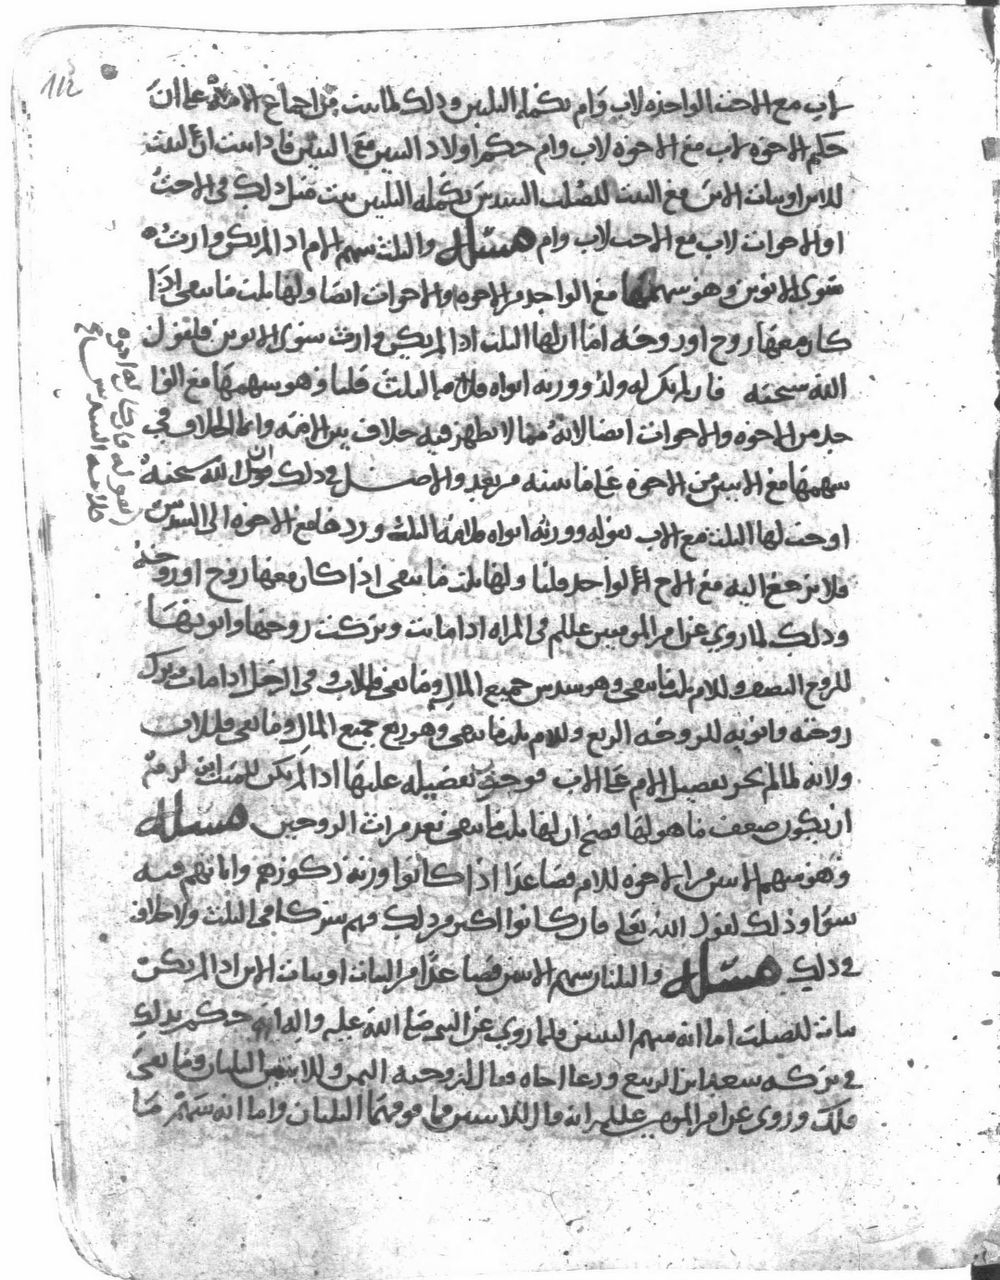 لاب مع الاخت الواحده لاب وام تكمله الثلثين وذلك لما ثبت من اجماع الامه على ان
حكم الاخوه لاب مع الاخوه لاب وام حكم اولاد البنين مع البنين فاذا ثبت ان لبنت
الابن او بنات الابن مع البنت للصلب السدس تكمله الثلثين ثبت مثل ذلك في الاخت
او الاخوات لاب مع الاخت لاب وام مسئله والثلث سهم الام اذا لم يكن وارث
سوى الابوين وهو سهمها مع الواحد من الاخوه والاخوات ايضا ولها ثلث ما يبقى اذا
كان معها زوج او زوجه اما ان لها الثلث اذا لم يكن وارث سوى الابوين فلقول
الله سبحنه فان لم يكن له ولد وورثه ابواه فلامه الثلث قلنا وهو سهمها مع الوا
حد من الاخوه والاخوات ايضا لانه مما لا يظهر فيه خلاف بين الامه وانما الخلاف في
سهمها مع الاثنين من الاخوه على ما نبينه من بعد والاصل في ذلك ان قول الله سبحنه
اوجب لها الثلث مع الاب بقوله وورثه ابواه فلامه الثلث وردها مع الاخوه الى السدس
فلا يرجع اليه مع الاخ الواحد قلنا ولها ثلث ما يبقى اذا كان معها زوج او زوجه
وذلك لما روي عن امير المومنين عللم في المراه اذا ماتت وتركت زوجها وابويها
للزوج النصف وللام ثلث ما يبقى وهو سدس جميع المال وما بقي فللاب وفي الرجل اذا مات وترك
زوجته وابويه للزوجه الربع وللام ثلث ما يبقى وهو ربع جميع المال وما بقي فللاب
ولانه لما لم يجز تفضيل الام على الاب فوجب تفضيله عليها اذا لم يكن للميت ابن لزم
ان يكون ضعف ما هو لها فصح ان لها ثلث ما يبقى بعد ميراث الزوجين مسئله
وهو سهم الاثنين من الاخوه للام فصاعدا اذا كانوا ورثه ذكورهم واناثهم فيه
سوا وذلك لقول الله تعلى فان كانوا اكثر من ذلك فهم شركا في الثلث ولا خلاف
في ذلك مسئله والثلثان سهم الاثنتين فصاعدا من البنات او بنات الابن اذا لم يكن
بنات للصلب اما انه سهم البنتين فلما روي عن النبي صلى الله عليه واله انه حكم بذلك
في تركه سعد ابن الربيع ودعا اخاه وقال لزوجته الثمن وللابنتين الثلثان وما بقي
فلك وروي عن امير المومنين عللم انه قال للابنتين فما فوقهما الثلثان واما انه سهم ما
لقوله فان كان له اخوه
فلامه السدس